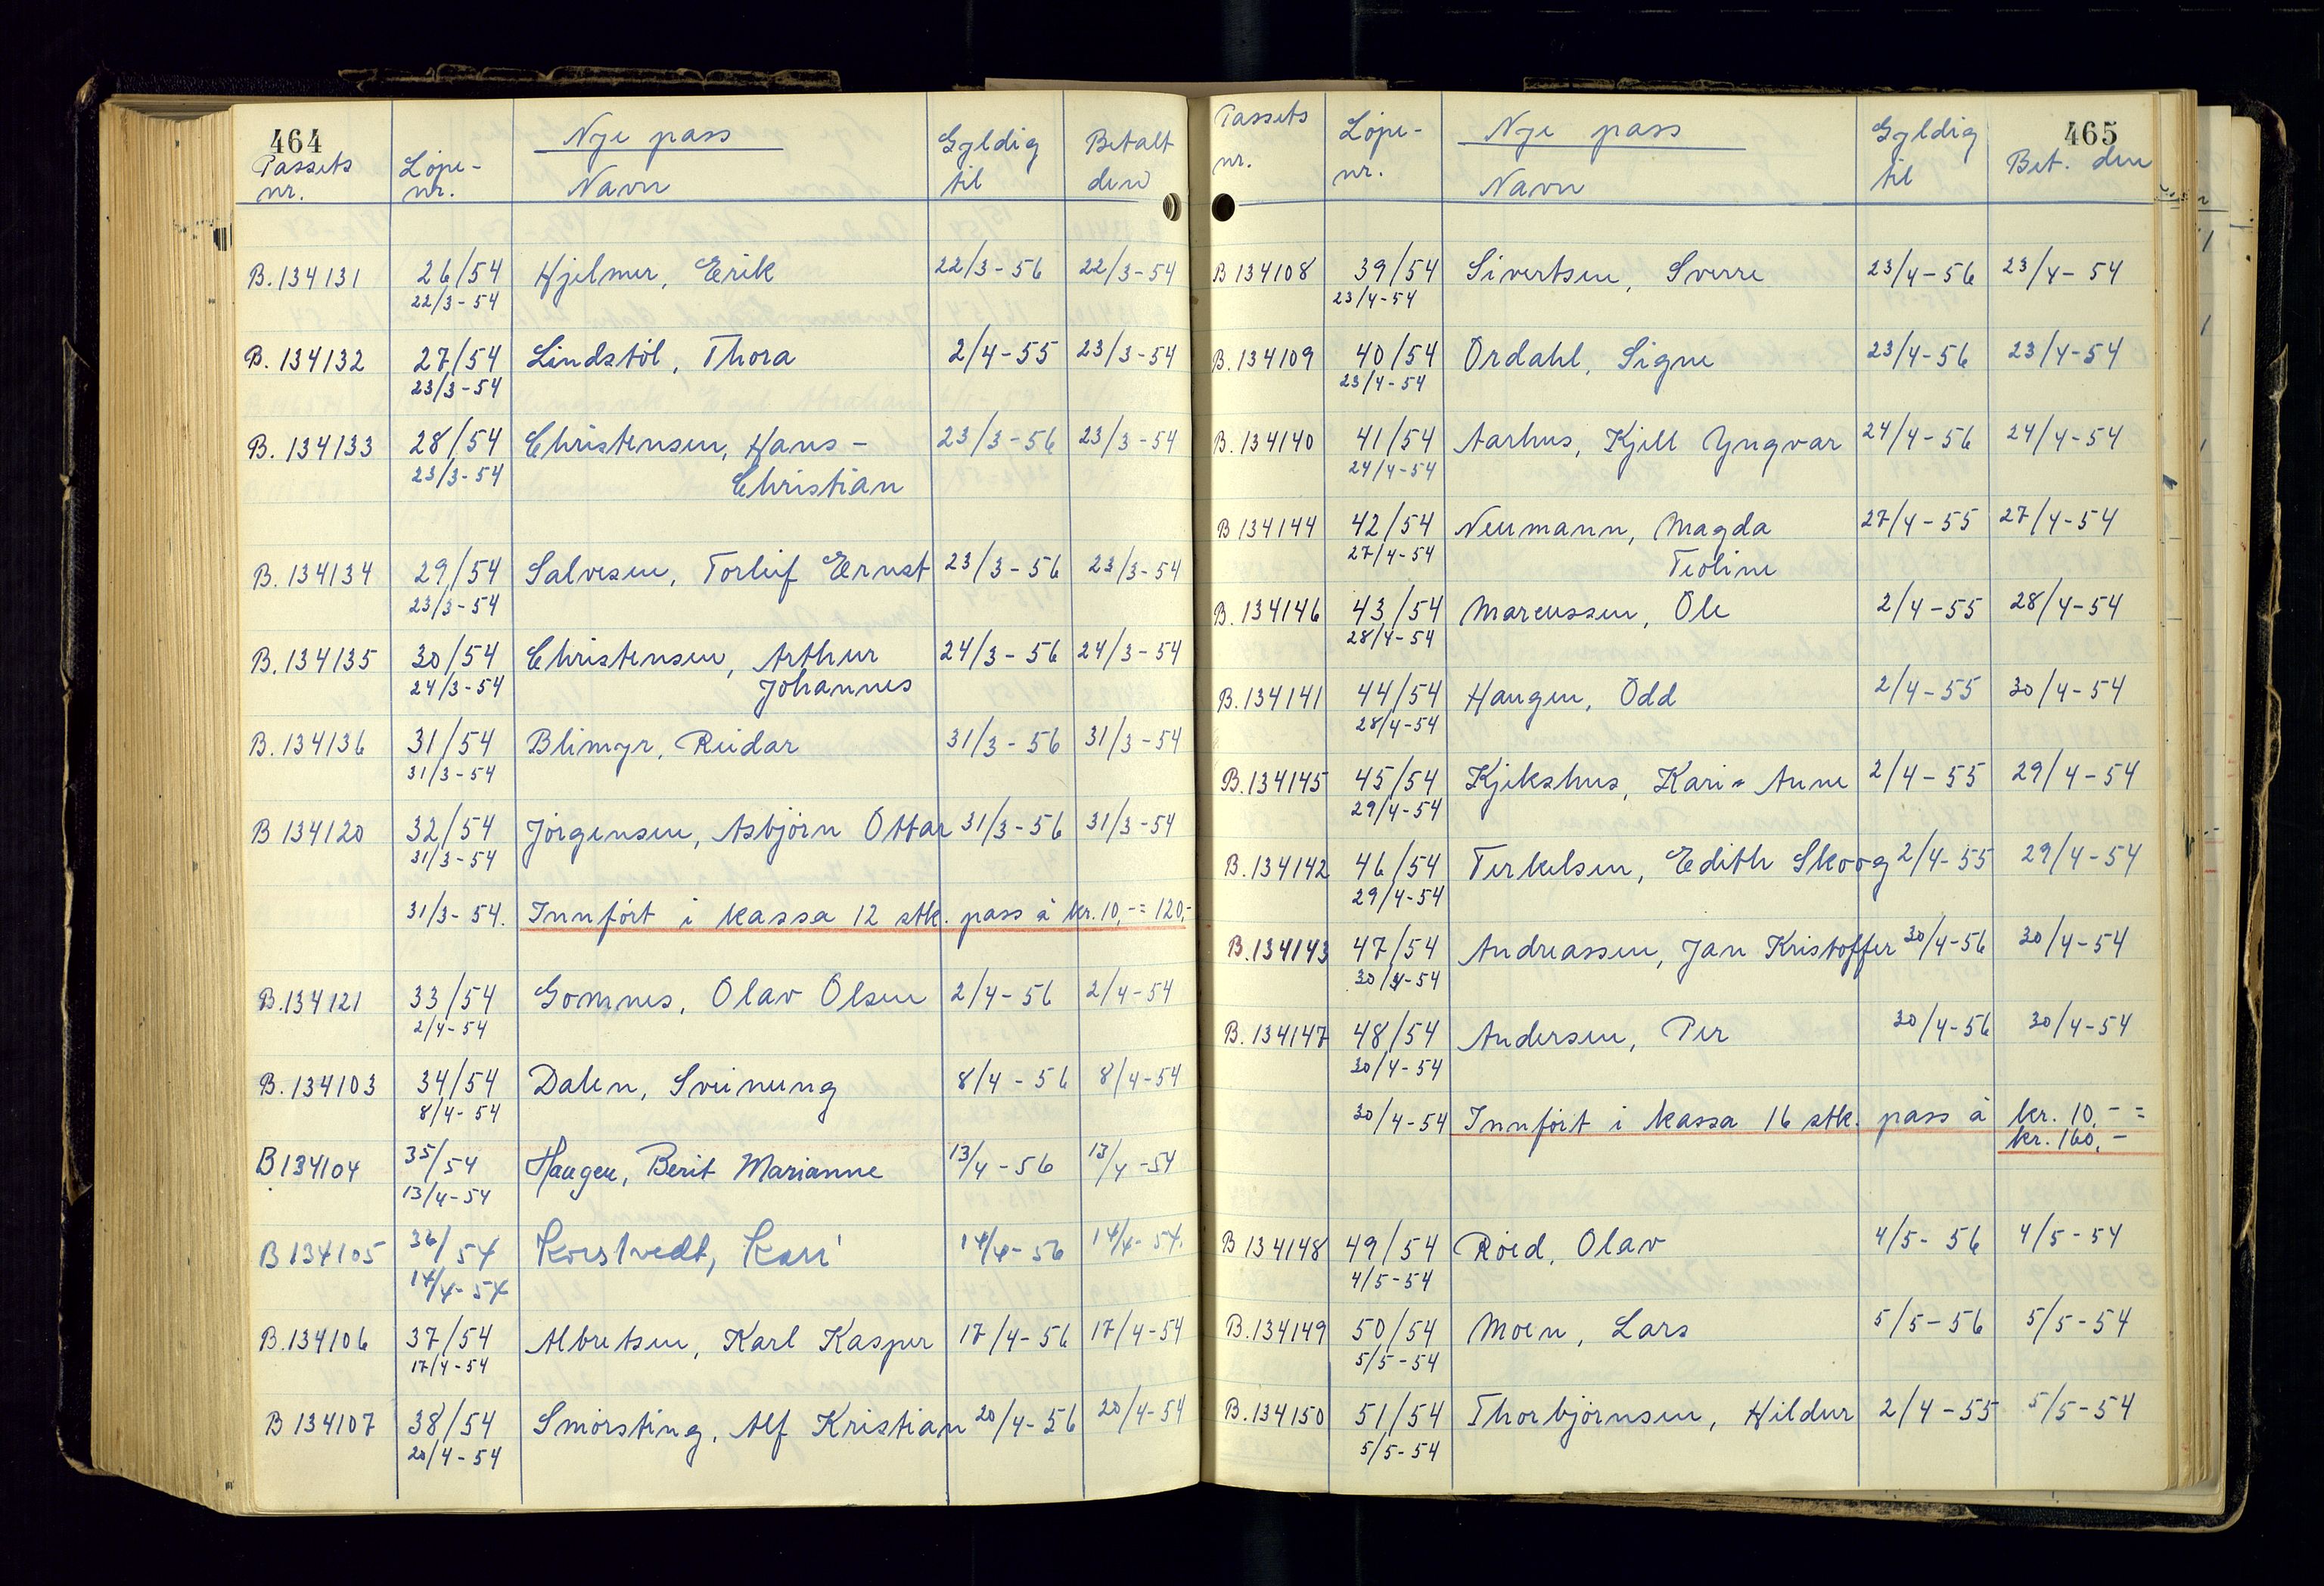 464
Nye pass
Passets nr. Löpe-nr. Navn Gyldig til Betalt den
B.134131 26/54 Hjelmer, Erik 22/3-56 22/3-54
22/3-54
B. 134132 27/54 Lindstöl, Thora 2/4-55 23/3-54
23/3-54
B. 134133 28/54 Christensen, Hans- 23/3-56 23/3-54
23/3-54 Christian
B. 134134 29/54 Salvesen, Torleif Ernst 23/3-56 23/3-54
23/3-54
B. 134135 30/54 Christensen, Arthur 24/3-56 24/3-54
24/3-54 Johannes
B. 134136 31/54 Blimyr, Reidar 31/3-56 31/3-54
31/3-54
B 134120 32/54 Jörgensen, Asbjörn Ottar 31/3-56 31/3-54
31/3-54
31/3-54. Innfört i kassa 12 stk. pass à kr. 10,-= 120,-
B.134121 33/54 Gomnes, Olav Olsen 2/4-56 2/4-54
2/4-54
B. 134103 34/54 Dalen, Sveinung 8/4-56 8/4-54
8/4-54
B 134104 35/54 Haugen, Berit Marianne 13/4-56 13/4-54
13/4-54
B 134105 36/54 Korstvedt, Kari 14/4-56 14/4-54.
14/4-54
B.134106 37/54 Albretsen, Karl Kasper 17/4-56 17/4-54
17/4-54
B 134107 38/54 Smörsting, Alf Kristian 20/4-56 20/4-54
20/4-54
465
Nye pass
Passets nr. Löpe-nr. Navn Gyldig til Bet. den
B 134108 39/54 Sivertsen, Sverre 23/4-56 23/4-54
23/4-54
B.134109 40/54 Ordahl, Signe 23/4-56 23/4-54
23/4-54
B.134140 41/54 Aarhus, Kjell Yngvar 24/4-56 24/4-54
24/4-54
B 134144 42/54 Neumann, Magda 27/4-55 27/4-54
27/4-54 Teoline
B. 134146 43/54 Marcussen, Ole 2/4-55 28/4-54
28/4-54
B.134141 44/54 Haugen, Odd 2/4-55 30/4-54
28/4-54
B.134145 45/54 Kjekshus, Kari-Anne 2/4-55 29/4-54
29/4-54
B.134142 46/54 Terkelsen, Edith Skoog 2/4-55 29/4-54
29/4-54
B.134143 47/54 Andreassen, Jan Kristoffer 30/4-56 30/4-54
30/4-54
B.134147 48/54 Andersen, Per 30/4-56 30/4-54
30/4-54
30/4-54 Innfört i kassa 16 stk. pass à kr. 10,-=
kr. 160,-
B 134148 49/54 Röed, Olav 4/5-56 4/5-54
4/5-54
B.134149 50/54 Moen, Lars 5/5-56 5/5-54
5/5-54
B.134150 51/54 Thorbjörnsen, Hildur 2/4-55 5/5-54
5/5-54